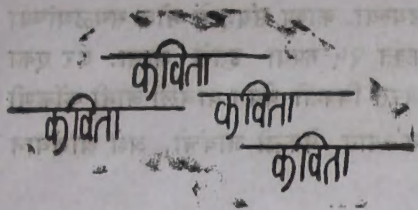 कविता
कविता
कविता
कविता